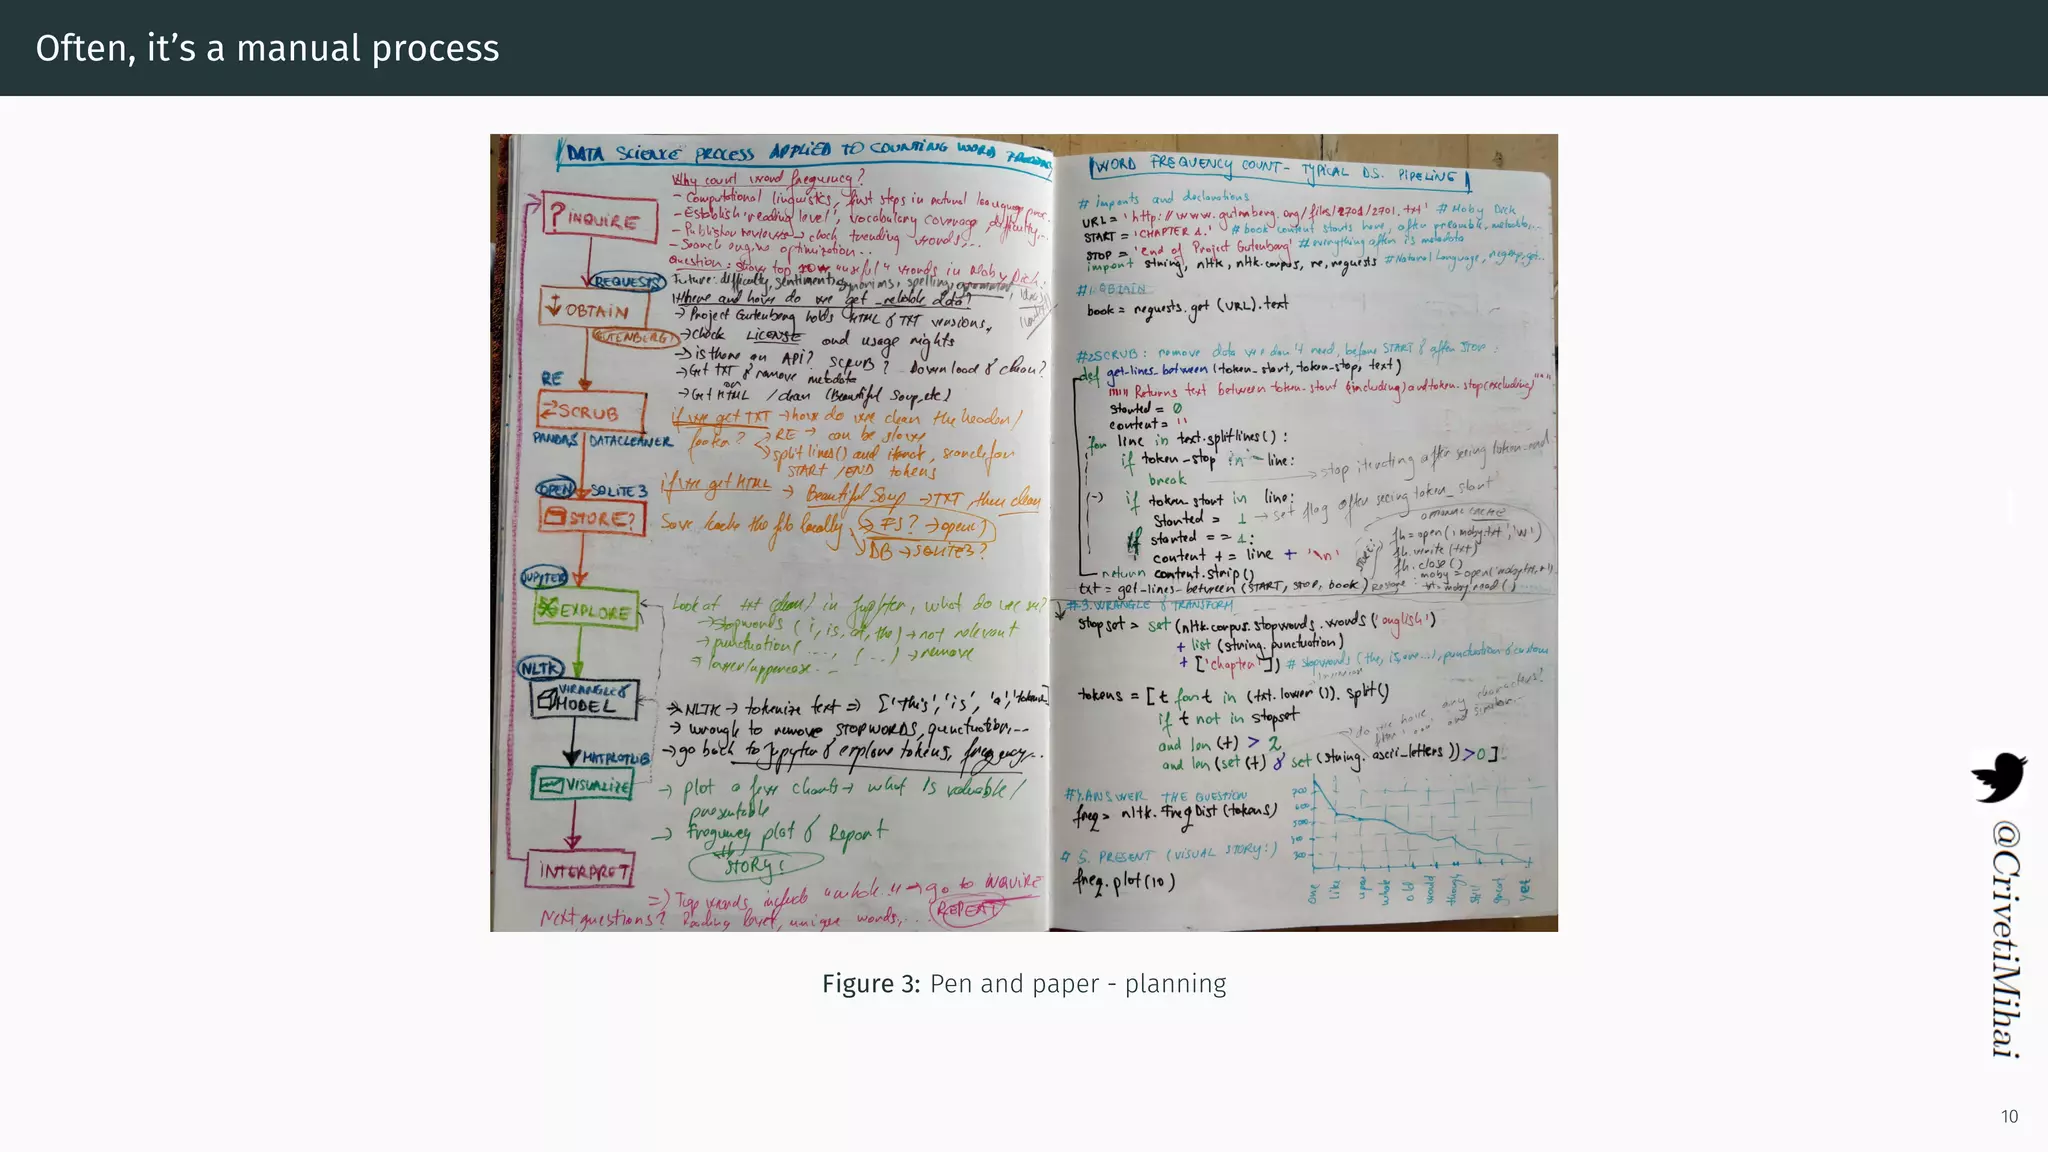 Often, it’s a manual process
DATA SCIENCE PROCESS APPLIED TO COUNTING WORD
? INQUIRE
REQUESTS
OBTAIN
GUTENBERG
RE
SCRUB
PANDAS DATACLEANER
OPEN SQLITE 3
STORE?
JUPYTER
EXPLORE
NLTK
WRANGLE &
MODEL
MATPLOTLIB
VISUALIZE
INTERPRET
Why count word frequency?
- Computational linguistics, first steps in natural language proc.
- Establish 'reading level', vocabulary coverage, difficulty...
- Publisher reviews → check trending words...
- Search engine optimization..
Question: show top 10 "useful" words in Moby Dick.
Future: difficulty, sentiment, synonims, spelling, grammar,
Where and how do we get reliable data?
→ Project Gutenberg holds HTML & TXT versions,
→ check LICENSE and usage rights
→ is there an API? SCRUB? Download & clean?
→ Get TXT & remove metadata
→ Get HTML / clean (Beautiful Soup, etc)
if we get TXT → how do we clean the header/
footer? → RE → can be slow
→ splitlines() and iterate, search for
START / END tokens
if we get HTML → Beautiful Soup → TXT, then clean
Save/cache the file locally → FS? → open()
DB → SQLite3?
Look at txt (clean) in Jupyter, what do we see?
→ stopwords (i, is, at, the) → not relevant
→ punctuation(..., ! ..) → remove
→ lower/uppercase...
→ NLTK → tokenize text ⇒ ['this', 'is', 'a', 'token']
→ wrangle to remove STOPWORDS, punctuation,...
→ go back to Jupyter & explore tokens, frequency...
→ plot a few charts → what is valuable/
presentable
→ Frequency plot & Report
STORY!
⇒ Top words include "whale" → go to INQUIRE
Next questions? Reading level, unique words,... REPEAT
WORD FREQUENCY COUNT - TYPICAL D.S. PIPELINE
# imports and declarations
URL = 'http://www.gutenberg.org/files/2701/2701.txt' # Moby Dick
START = 'CHAPTER 1.' # book content starts here, after preamble, metadata,...
STOP = 'End of Project Gutenberg' # everything after is metadata
import string, nltk, nltk.corpus, re, requests # Natural Language, regexp, get..
#1. OBTAIN
book = requests.get (URL).text
#2 SCRUB: remove data we don't need, before START & after STOP:
def get-lines_between (token_start, token-stop, text)
""" Returns text between token-start (including) and token-stop (excluding) """
started = 0
content = ''
for line in text.splitlines():
if token-stop in line:
break → stop iterating after seeing token_end
if token_start in line:
started = 1 → set flag after seeing token_start
if started == 1:
content += line + '\n'
return content.strip()
OPTIONAL CACHE
fh = open('moby.txt', 'w')
fh.write(txt)
fh.close()
txt = get-lines-between (START, STOP, book)
#3. WRANGLE & TRANSFORM
stopset = set (nltk.corpus.stopwords.words('english')
+ list (string.punctuation)
+ ['chapter'])
tokens = [t for t in (txt.lower()).split()
if t not in stopset
and len (t) > 2
and len (set (t) & set (string.ascii_letters)) > 0]
#4. ANSWER THE QUESTION
freq = nltk.FreqDist (tokens)
# 5. PRESENT (VISUAL STORY:)
freq.plot(10)
one like upon whale old would though still great yet
Figure 3: Pen and paper - planning
@CrivetiMihai
10